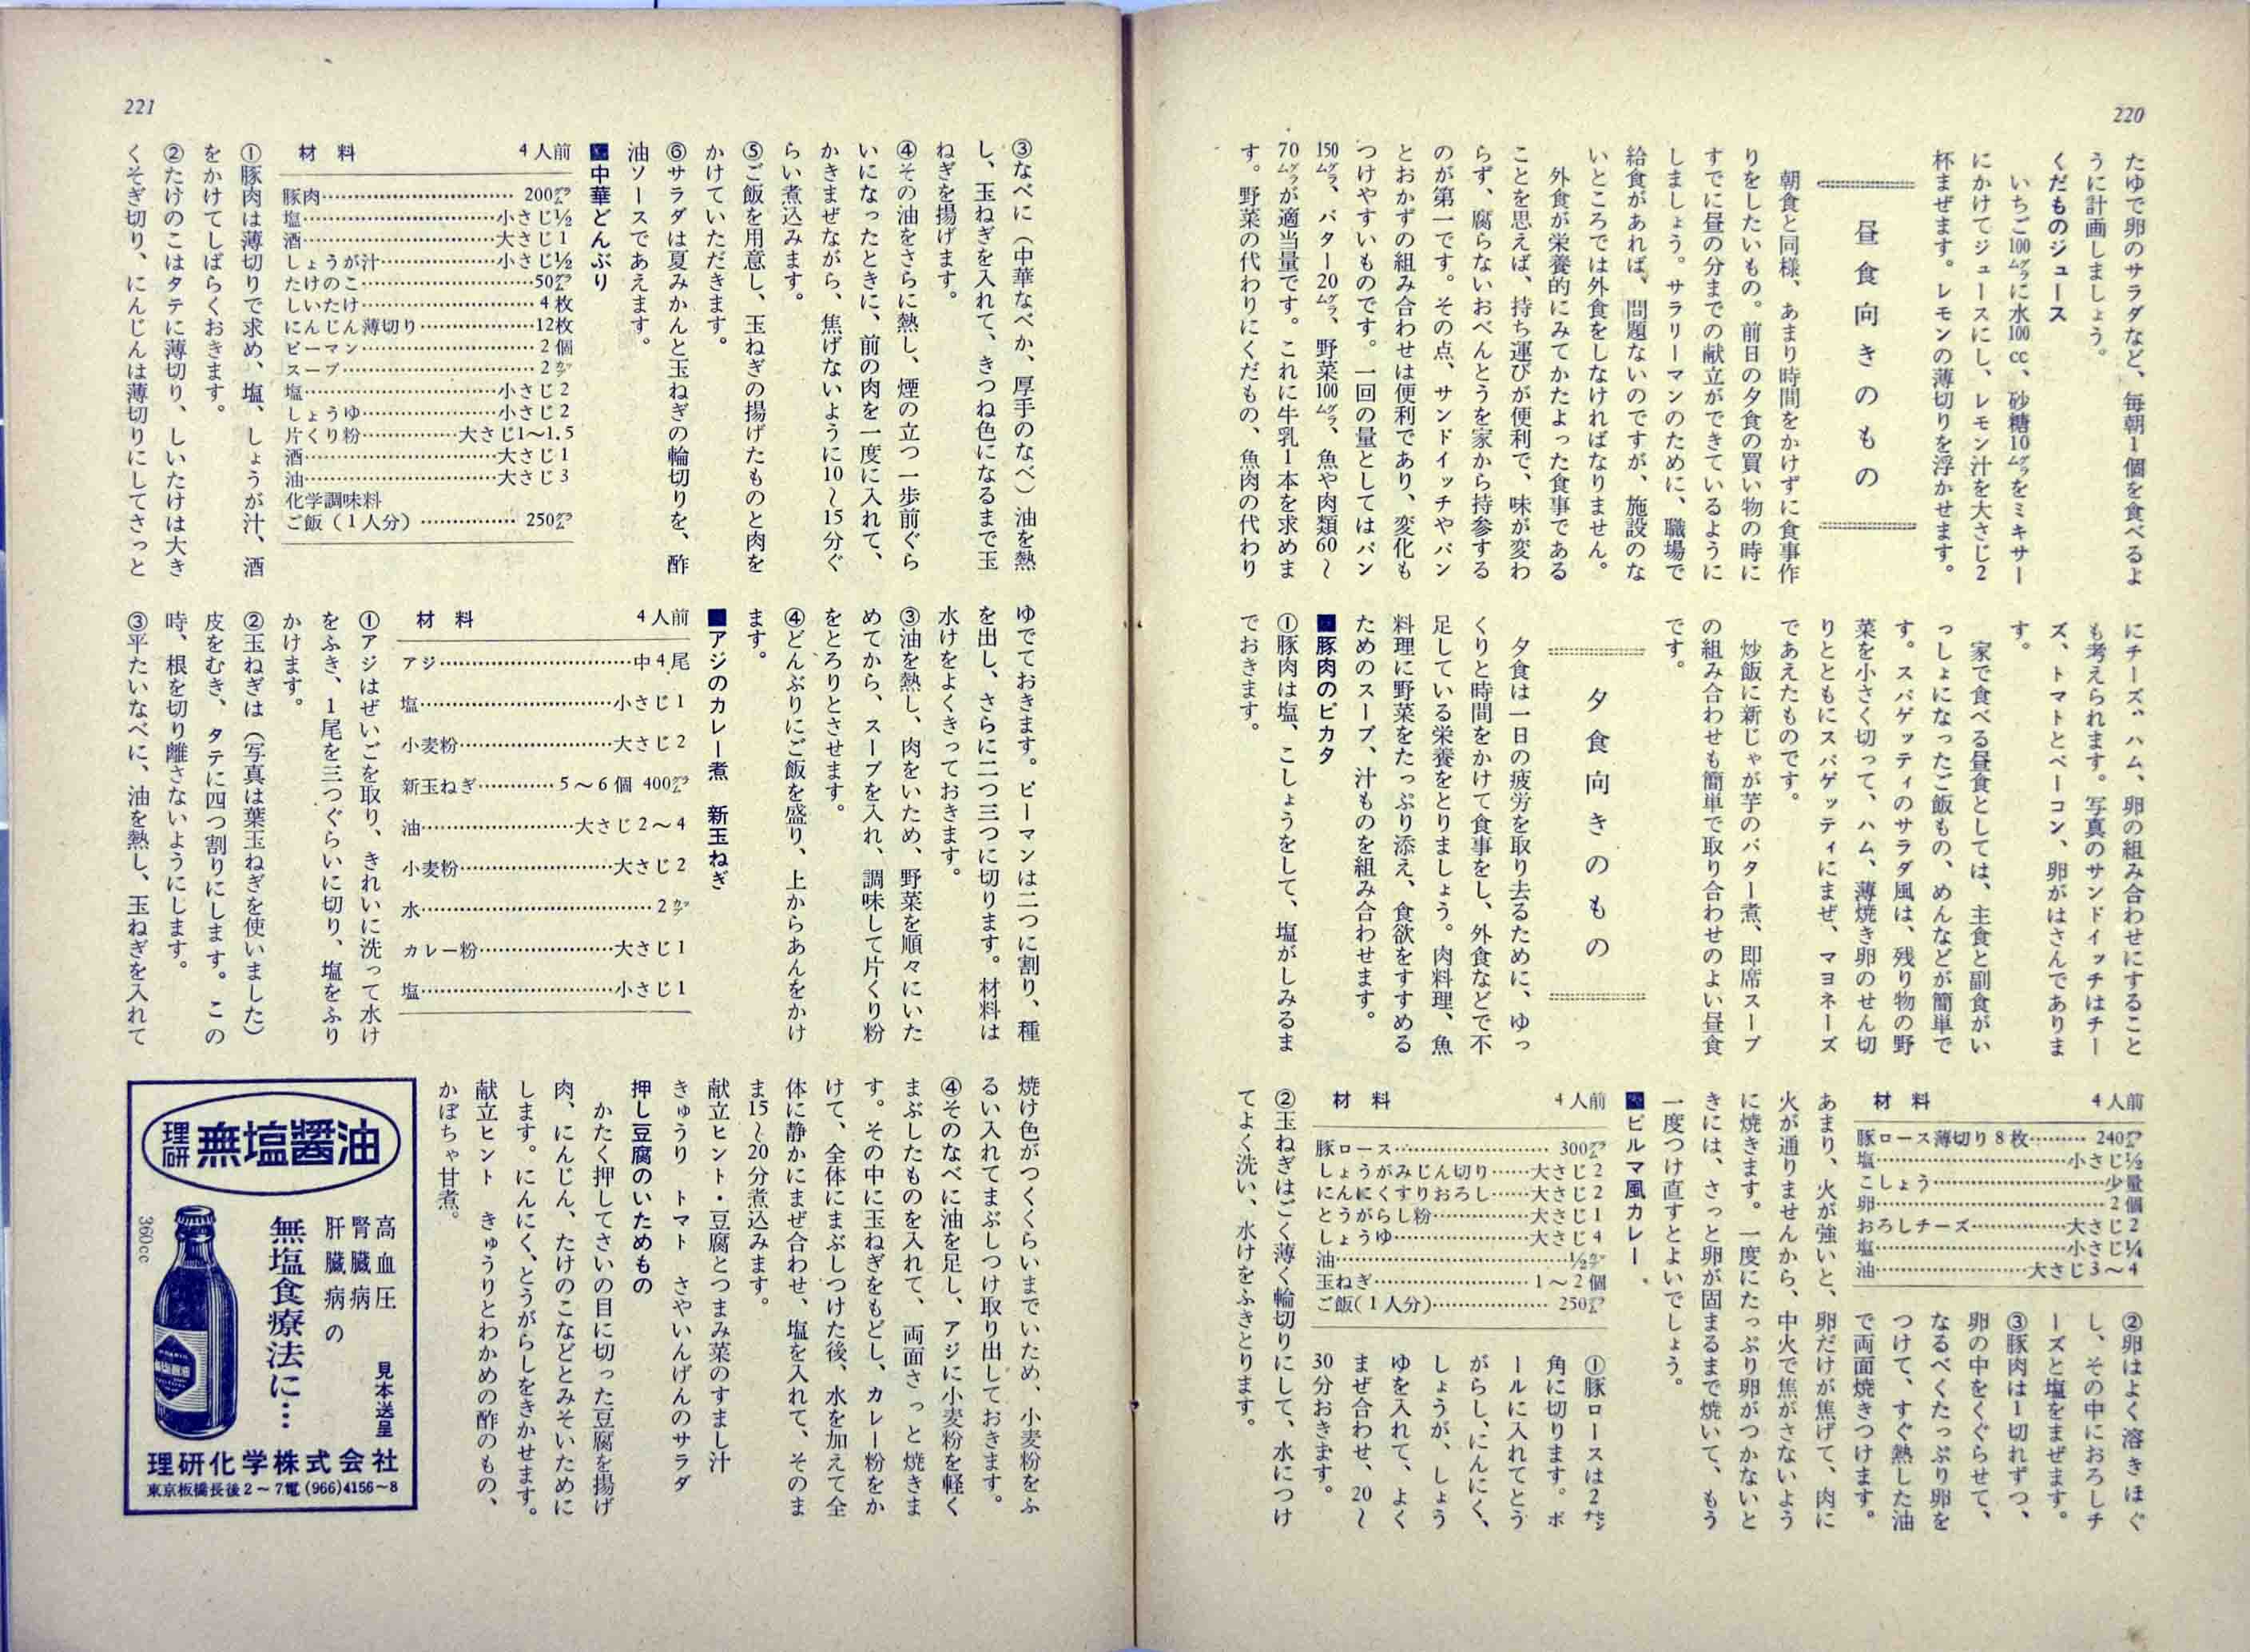 220
たゆで卵のサラダなど、毎朝1個を食べるよ
うに計画しましょう。
くだものジュース
いちご100グラムに水100cc、砂糖10グラムをミキサー
にかけてジュースにし、レモン汁を大さじ2
杯まぜます。レモンの薄切りを浮かせます。
昼食向きのもの
朝食と同様、あまり時間をかけずに食事作
りをしたいもの。前日の夕食の買い物の時に
すでに昼の分までの献立ができているように
しましょう。サラリーマンのために、職場で
給食があれば、問題ないのですが、施設のな
いところでは外食をしなければなりません。
外食が栄養的にみてかたよった食事である
ことを思えば、持ち運びが便利で、味が変わ
らず、腐らないおべんとうを家から持参する
のが第一です。その点、サンドイッチやパン
とおかずの組み合わせは便利であり、変化も
つけやすいものです。一回の量としてはパン
150グラム、バター20グラム、野菜100グラム、魚や肉類60〜
70グラムが適当量です。これに牛乳1本を求めま
す。野菜の代わりにくだもの、魚肉の代わり
にチーズ、ハム、卵の組み合わせにすること
も考えられます。写真のサンドイッチはチー
ズ、トマトとベーコン、卵がはさんでありま
す。
家で食べる昼食としては、主食と副食がい
っしょになったご飯もの、めんなどが簡単で
す。スパゲッティのサラダ風は、残り物の野
菜を小さく切って、ハム、薄焼き卵のせん切
りとともにスパゲッティにまぜ、マヨネーズ
であえたものです。
炒飯に新じゃが芋のバター煮、即席スープ
の組み合わせも簡単で取り合わせのよい昼食
です。
夕食向きのもの
夕食は一日の疲労を取り去るために、ゆっ
くりと時間をかけて食事をし、外食などで不
足している栄養をとりましょう。肉料理、魚
料理に野菜をたっぷり添え、食欲をすすめる
ためのスープ、汁ものを組み合わせます。
■豚肉のピカタ
①豚肉は塩、こしょうをして、塩がしみるま
でおきます。
材料 4人前
豚ロース薄切り8枚……… 240グラム
塩……………………小さじ½
こしょう……………………少量
卵……………………2個
おろしチーズ……………大さじ2
塩……………………小さじ¼
油……………………大さじ3〜4
②卵はよく溶きほぐ
し、その中におろしチ
ーズと塩をまぜます。
③豚肉は1切れずつ、
卵の中をくぐらせて、
なるべくたっぷり卵を
つけて、すぐ熱した油
で両面焼きつけます。
あまり、火が強いと、卵だけが焦げて、肉に
火が通りませんから、中火で焦がさないよう
に焼きます。一度にたっぷり卵がつかないと
きには、さっと卵が固まるまで焼いて、もう
一度つけ直すとよいでしょう。
■ビルマ風カレー
材料 4人前
豚ロース……………… 300グラム
しょうがみじん切り……大さじ2
にんにくすりおろし……大さじ2
とうがらし粉…………大さじ1
しょうゆ……………大さじ4
油……………………½カップ
玉ねぎ………………1〜2個
ご飯(1人分)……………… 250グラム
①豚ロースは2センチ
角に切ります。ボ
ールに入れてとう
がらし、にんにく、
しょうが、しょう
ゆを入れて、よく
まぜ合わせ、20〜
30分おきます。
②玉ねぎはごく薄く輪切りにして、水につけ
てよく洗い、水けをふきとります。
221
③なべに(中華なべか、厚手のなべ)油を熱
し、玉ねぎを入れて、きつね色になるまで玉
ねぎを揚げます。
④その油をさらに熱し、煙の立つ一歩前ぐら
いになったときに、前の肉を一度に入れて、
かきまぜながら、焦げないように10〜15分ぐ
らい煮込みます。
⑤ご飯を用意し、玉ねぎの揚げたものと肉を
かけていただきます。
⑥サラダは夏みかんと玉ねぎの輪切りを、酢
油ソースであえます。
■中華どんぶり
材料 4人前
豚肉……………………… 200グラム
塩……………………小さじ½
酒……………………大さじ1
しょうが汁……………小さじ½
たけのこ………………50グラム
しいたけ………………4枚
にんじん薄切り…………12枚
ピーマン………………2個
スープ…………………2カップ
塩……………………小さじ2
しょうゆ………………小さじ2
片くり粉…………大さじ1〜1.5
酒……………………大さじ1
油……………………大さじ3
化学調味料
ご飯(1人分)…………… 250グラム
①豚肉は薄切りで求め、塩、しょうが汁、酒
をかけてしばらくおきます。
②たけのこはタテに薄切り、しいたけは大き
くそぎ切り、にんじんは薄切りにしてさっと
ゆでておきます。ピーマンは二つに割り、種
を出し、さらに二つ三つに切ります。材料は
水けをよくきっておきます。
③油を熱し、肉をいため、野菜を順々にいた
めてから、スープを入れ、調味して片くり粉
をとろりとさせます。
④どんぶりにご飯を盛り、上からあんをかけ
ます。
■アジのカレー煮 新玉ねぎ
材料 4人前
アジ……………………中4尾
塩……………………小さじ1
小麦粉………………大さじ2
新玉ねぎ…………5〜6個 400グラム
油………………大さじ2〜4
小麦粉………………大さじ2
水……………………2カップ
カレー粉……………大さじ1
塩……………………小さじ1
①アジはぜいごを取り、きれいに洗って水け
をふき、1尾を三つぐらいに切り、塩をふり
かけます。
②玉ねぎは(写真は葉玉ねぎを使いました)
皮をむき、タテに四つ割りにします。この
時、根を切り離さないようにします。
③平たいなべに、油を熱し、玉ねぎを入れて
焼け色がつくくらいまでいため、小麦粉をふ
るい入れてまぶしつけ取り出しておきます。
④そのなべに油を足し、アジに小麦粉を軽く
まぶしたものを入れて、両面さっと焼きま
す。その中に玉ねぎをもどし、カレー粉をか
けて、全体にまぶしつけた後、水を加えて全
体に静かにまぜ合わせ、塩を入れて、そのま
ま15〜20分煮込みます。
献立ヒント・豆腐とつまみ菜のすまし汁
きゅうり トマト さやいんげんのサラダ
押し豆腐のいためもの
かたく押してさいの目に切った豆腐を揚げ
肉、にんじん、たけのこなどとみそいために
します。にんにく、とうがらしをきかせます。
献立ヒント きゅうりとわかめの酢のもの、
かぼちゃ甘煮。
理研 無塩醤油
高血圧
腎臓病
肝臓病の
無塩食療法に…
見本送呈
360cc
理研化学株式会社
東京板橋長後2〜7電(966)4156〜8